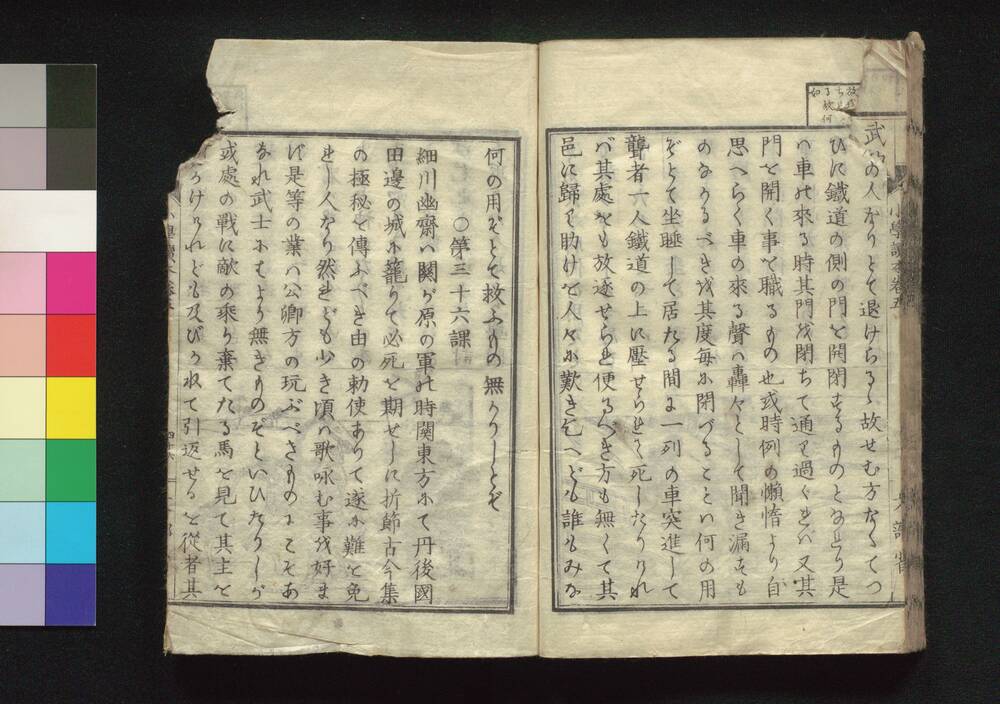 の人なりとて退けらるゝ故せむ方なくてつ
ひに鐵道の側の門を開閉するものとなせり是
ハ車の來る時其門を閉ちて通を過ぐれハ又其
門を開く事を職るもの也或時例の懶惰より自
思へらく車の來る聲ハ轟々として聞き漏すも
のなかるべき故其度毎に閉づることハ何の用
ぞとて坐睡して居たる間に一列の車突進して
聾者一人鐵道の上に壓せられて死したりけれ
バ其處をも放逐せられ便るべき方も無くて其
邑に歸り助けを人々に歎き乞へども誰もみな
何の用ぞとて救ふもの無かりしとぞ
○第三十六課
細川幽齋ハ關ヶ原の軍の時関東方にて丹後國
田邊の城に籠りて必死を期せしに折節古今集
の極秘を傳ふべき由の勅使ありて遂に難を免
れし人なり然れども少き頃ハ歌咏む事を好ま
ず是等の業ハ公卿方の玩ぶべきものにこそあ
なれ武士にハより無きものぞといひたりしが
或處の戰に敵の乘り棄てたる馬を見て其主を
かけけれども及びかねて引返せるを從者其